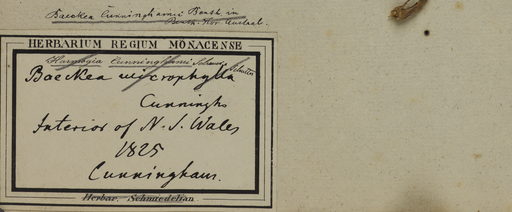 Baeckea Cunninghamii Benth in
Benth. Flor Austral.
HERBARIUM REGIUM MONACENSE
Harmogia Cunninghami Schauer
Baeckea microphylla
Cunningh.
Interior of N. S. Wales
1825
Cunningham.
Herbar. Schmiedelian